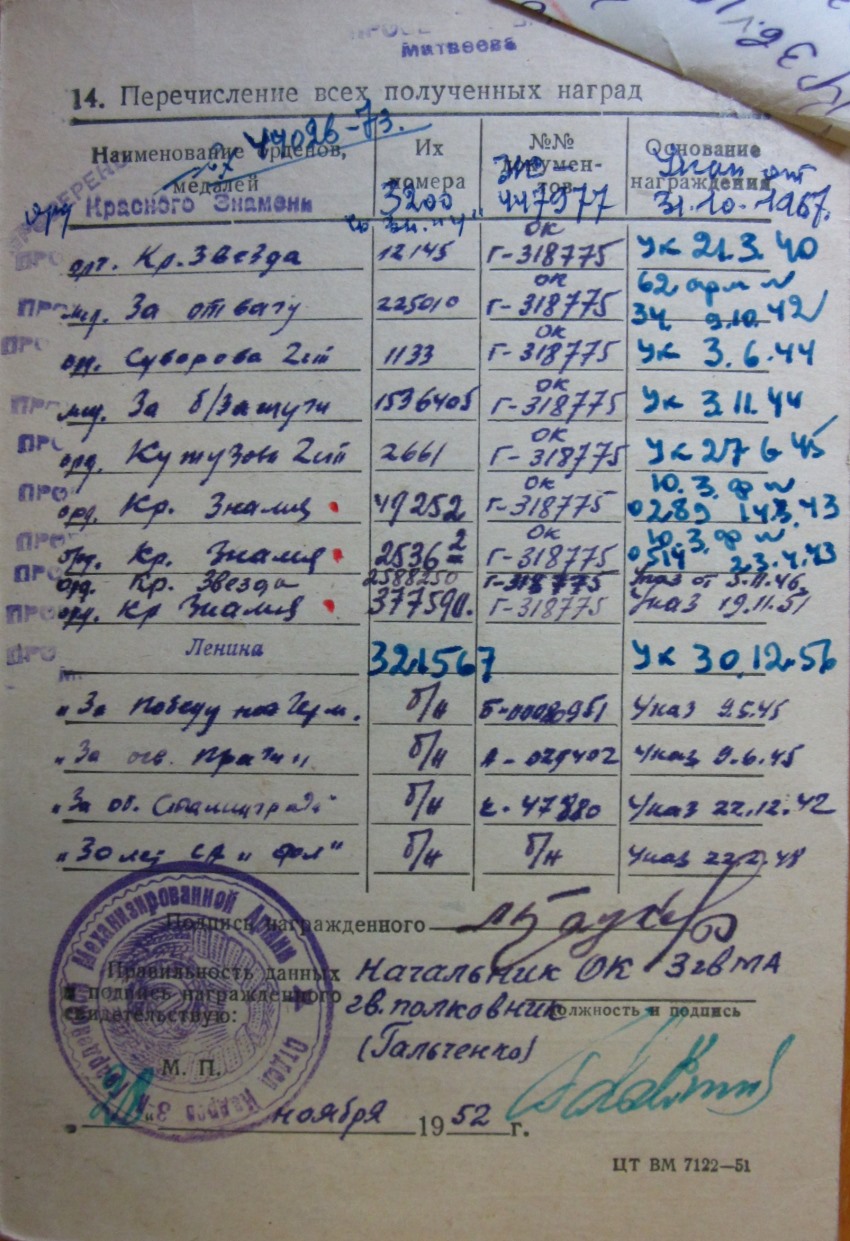 Матвеева
14. Перечисление всех полученных наград
44026-73.
Наименование орденов, медалей
Их номера
№№ документов
Основание награждения
орд Красного Знамени 3200 447977 Указ от 31.10.1967.
орд. Кр. Звезда 12145 ОК Г-318775 Ук 21.3.40
мед. За отвагу 225010 ОК Г-318775 62 арм 34 9.10.42
орд. Суворова 2ст 1133 ОК Г-318775 Ук 3.6.44
мед. За б/заслуги 1536405 ОК Г-318775 Ук 3.11.44
орд. Кутузова 2ст 2661 ОК Г-318775 Ук 27 6 45
орд. Кр. Знамя 49252 ОК Г-318775 0289 14.3.43
орд. Кр. Знамя 2536 2 ОК Г-318775 0514 23.4.43
орд. Кр. Звезда 2588250 Г-318775 Указ от 5.11.46
орд. Кр Знамя 377590. Г-318775 Указ 19.11.51
Ленина 321567 Ук 30.12.56
"За победу над Герм. б/н Указ 9.5.45
"За осв. Праги" б/н А-029402 Указ 9.6.45
"За об. Сталинграда" б/н Указ 22.12.42
"30 лет СА и фл" б/н б/н Указ 22.2.48
Подпись награжденного
Правильность данных и подпись награжденного свидетельствую:
Начальник ОК 3 гв МА
гв. полковник
должность и подпись
(Гальченко)
М. П.
Механизированной Армии
Отдел Кадров 3-й Гвардейской
ноября 1952 г.
ЦТ ВМ 7122—51